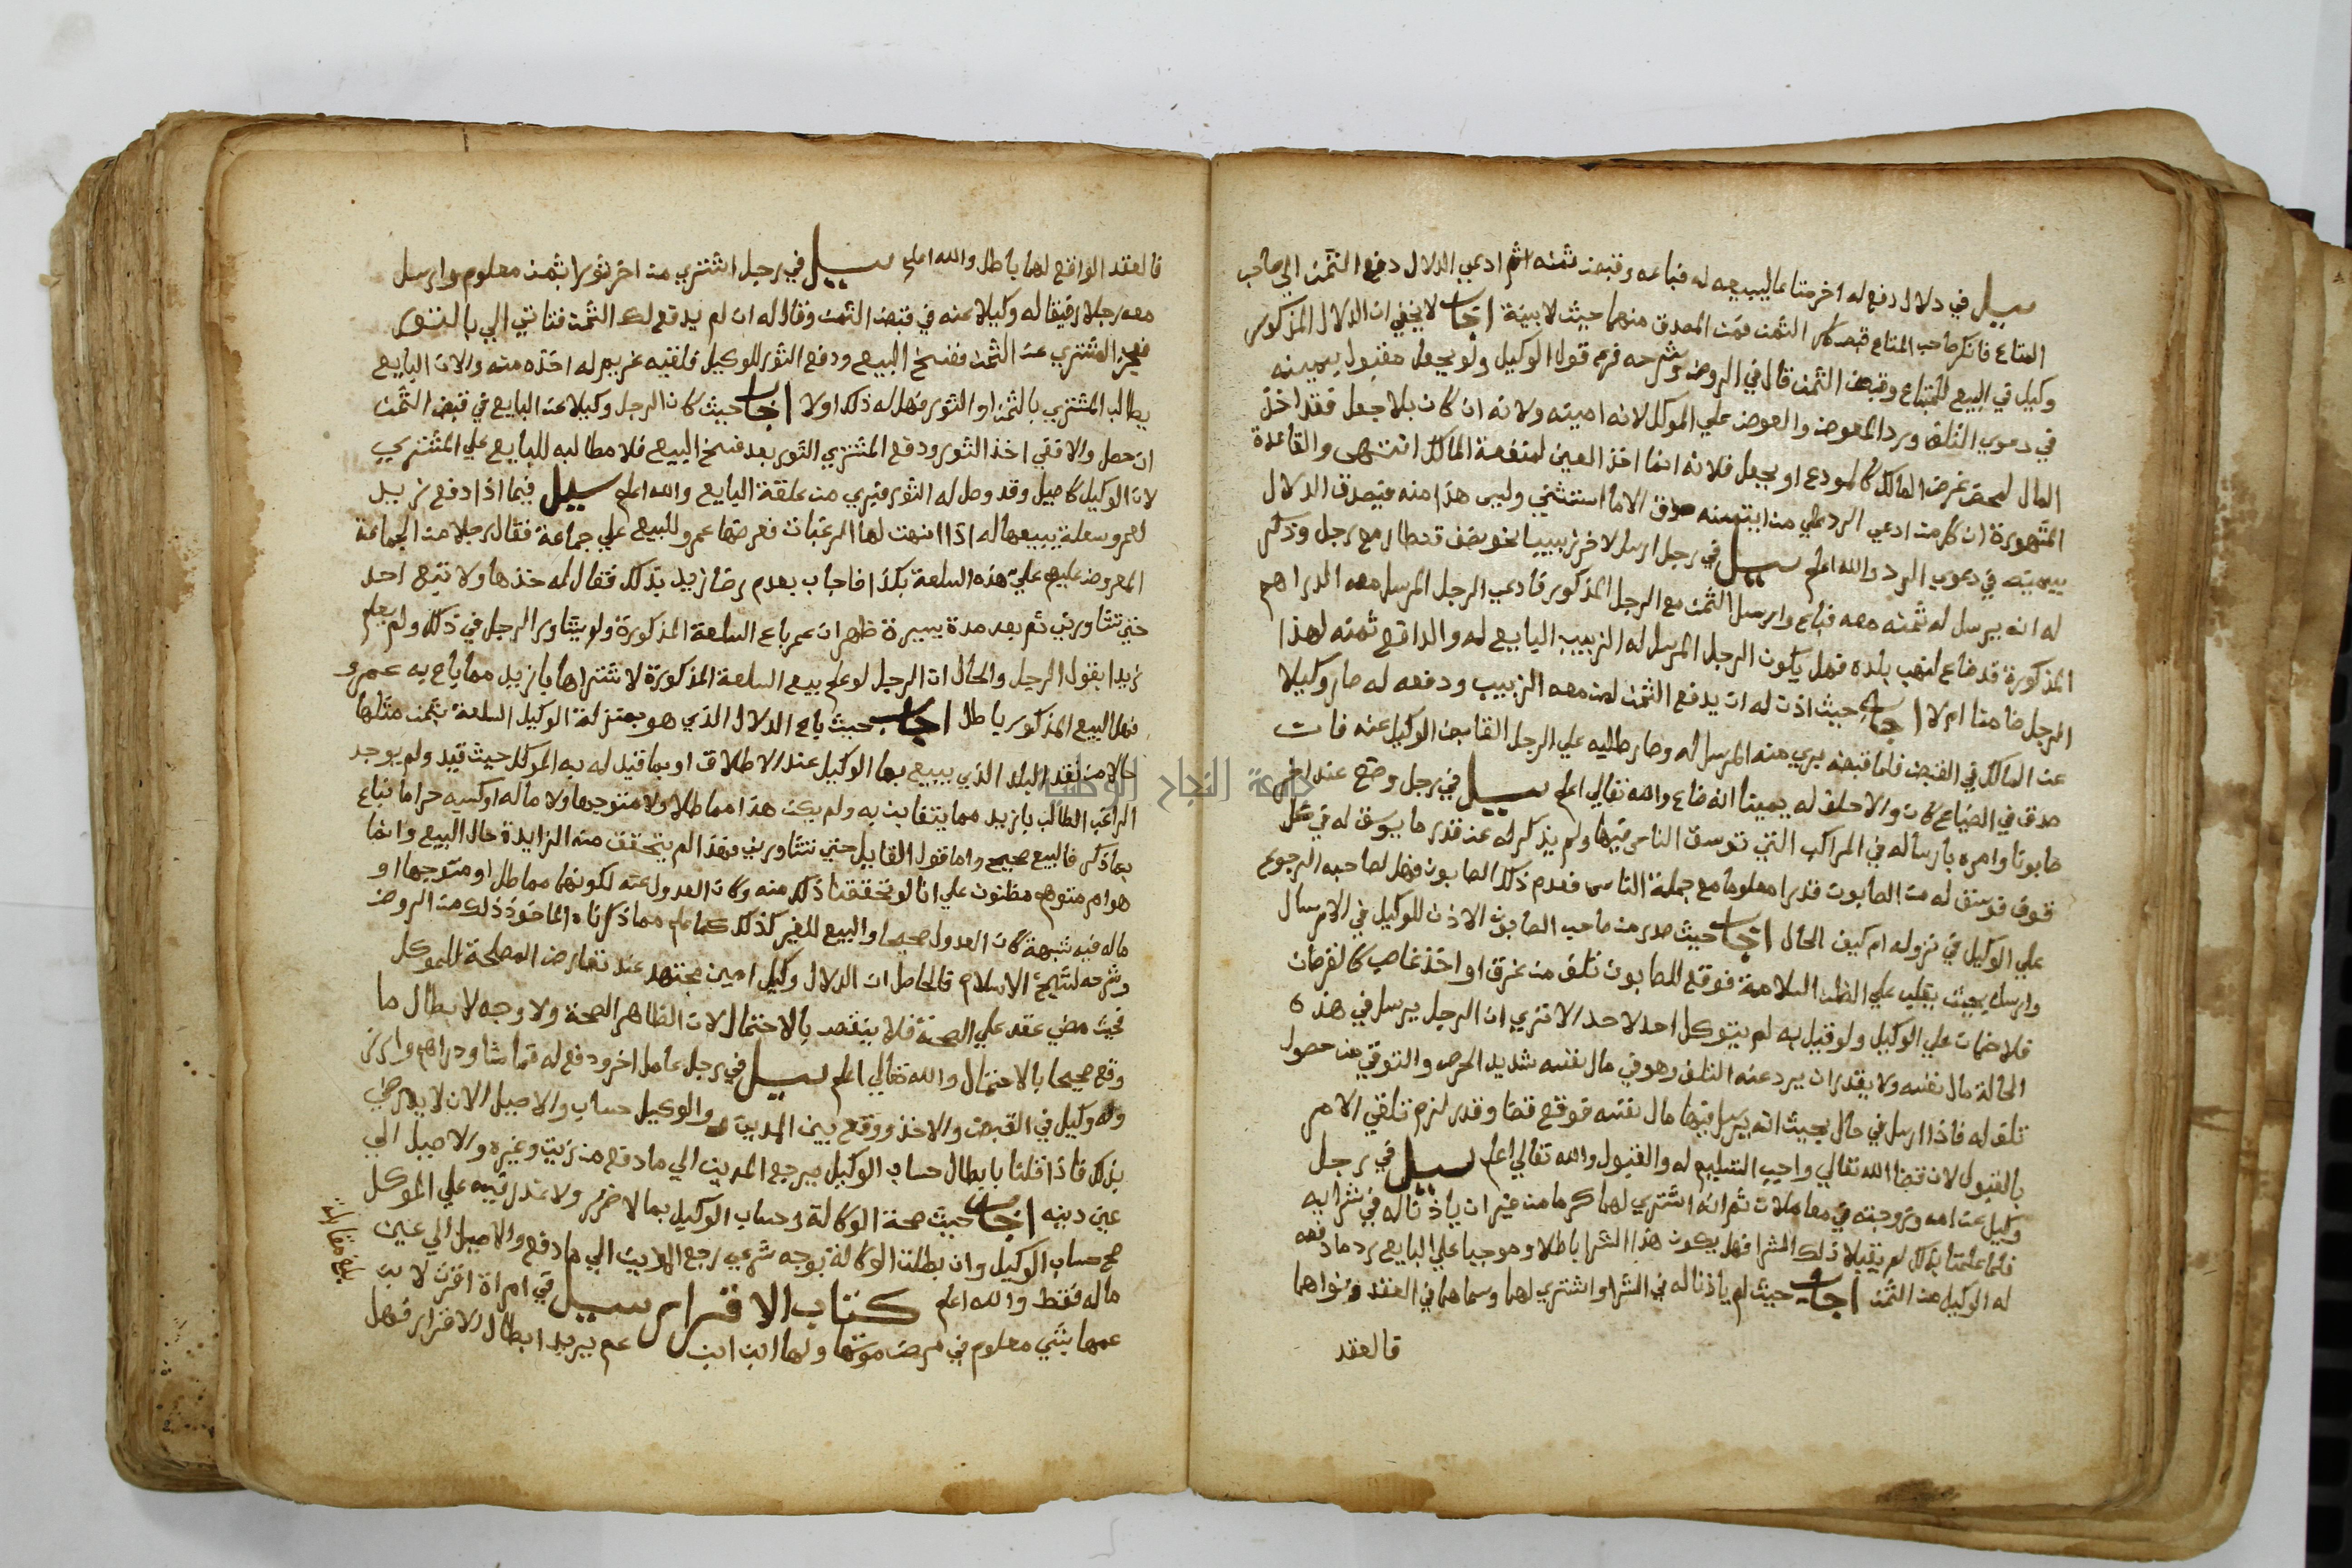 سيل في دلال دفع له اخر متاعا ليبيعه له فباعه وقبض ثمنه ثم ادعي الدلال دفع الثمن الي صاحب
المتاع فانكر صاحب المتاع الثمن فمن المصدق منهما حيث لا بينة اجاب لا يخفي ان الدلال المذكور
وكيل في البيع للمتاع وقبض الثمن قال في الروض وشرحه فرع قول الوكيل ولو بجعل مقبول بيمينه
في دعوي التلف ورد المعوض والعوض علي الموكل لانه امينه ولانه ان كان بلا جعل فقد اخذ
المال لمحض غرض المالك كالمودع او بجعل فلانه انما اخذ العين لمنفعة المالك انتهى والقاعدة
المشهورة ان كل من ادعي الرد علي من ايتمنه صدق الا ما استثني وليس هذا منه فيصدق الدلال
بيمينه في دعوي الرد والله اعلم سيل في رجل ارسل لاخر زبيبا نحو نصف قنطار مع رجل وذكر
له انه يرسل له ثمنه معه فباع وارسل الثمن مع الرجل المذكور فادعي الرجل المرسل معه الدراهم
المذكورة قد ضاع لنهب بلده فهل يكون الرجل المرسل له الزبيب البايع له والدافع ثمنه لهذا
الرجل ضامنا ام لا اجاب حيث اذن له ان يدفع الثمن لمن معه الزبيب ودفعه له صار وكيلا
عن المالك في القبض فلما قبضه بري منه المرسل له وصار طلبه علي الرجل القابض الوكيل عنه فان
صدق في الضياع كان والا حلف له يمينا انه ضاع والله تعالي اعلم سيل في رجل وضع عند اخر
صابونا وامره بارساله في المراكب التي توسق الناس فيها ولم يذكر له عن قدر ما يوسق له في كل
فوق فوسق له من الصابون قدرا معلوما مع جملة الناس فعدم ذلك الصابون فهل لصاحبه الرجوع
علي الوكيل في نزوله ام كيف الحال اجاب حيث صدر من صاحب الصابون الاذن للوكيل في الارسال
وارسل بحيث يغلب علي الظن السلامة فوقع للصابون تلف من غرق او اخذ غاصب كالفرصان
فلا ضمان علي الوكيل ولو قيل به لم يتوكل احد لاحد الا تري ان الرجل يرسل في هذه
الحالة مال نفسه ولا يقدر ان يرد عنه التلف وهو في مال نفسه شديد الحرص والتوقي عن حصول
تلف له فاذا ارسل في حال بحيث انه يرسل فيها مال نفسه فوقع قضا وقدر لزم تلقي الامر
بالقبول لان قضا الله تعالي واجب التسليم له والقبول والله تعالي اعلم سيل في رجل
وكيل عن امه وزوجته في معاملات ثم انه اشتري لهما كرما من غير ان ياذنا له في شرايه
فلما علمتا بذلك لم يقبلا ذلك الشرا فهل يكون هذا الشرا باطلا وموجبا علي البايع رد ما دفعه
له الوكيل من الثمن اجاب حيث لم ياذنا له في الشرا واشتري لهما وسماهما في العقد ونواهما
فالعقد
فالعقد الواقع لهما باطل والله اعلم سيل في رجل اشتري من اخر ثورا بثمن معلوم وارسل
معه رجلا رفيقا له وكيلا عنه في قبض الثمن وقال له ان لم يدفع لك الثمن فتاتي الي بالثور
فعجز المشتري عن الثمن ففسخ البيع ودفع الثور للوكيل فلقيه غريم له اخذه منه والان البايع
يطالب المشتري بالثمن او الثور فهل له ذلك او لا اجاب حيث كان الرجل وكيلا عن البايع في قبض الثمن
ان حصل والا ففي اخذ الثور ودفع المشتري الثور بعد فسخ البيع فلا مطالبه للبايع علي المشتري
لان الوكيل كاصيل وقد وصل له الثور فبري من علقة البايع والله اعلم سيل فيما اذا دفع زيد
لعمرو سعلة يبيعها له اذا انتهت لها الرغبات فعرضها عمرو للبيع علي جماعة فقال رجلا من الجماعة
المعروض عليهم علي هذه السلعة بكذا فاجاب بعدم رضا زيد بذلك فقال له خذها ولا تبع احد
حتي تشاورني ثم بعد مدة يسيرة ظهر ان عمر باع السلعة المذكورة ولم يشاور الرجل في ذلك ولم يعلم
زيدا بقول الرجل والحال ان الرجل لو علم بيع السلعة المذكورة لاشتراها بازيد مما باع به عمرو
فهل البيع المذكور باطل اجاب حيث باع الدلال الذي هو بمنزلة الوكيل السلعة بثمن مثلها
حالا من نقد البلد الذي يبيع بها الوكيل عند الاطلاق او بما قيد له به الموكل حيث قيد ولم يوجد
الراغب الطالب بازيد مما يتغابن به ولم يكن هذا مماطلا ولا متوجها ولا ماله او كسبه حراما فباع
بما ذكر فالبيع صحيح واما قول القايل حتي تشاورني فهذا لم يتحقق منه الزايدة حال البيع وانما
هو امر متوهم مظنون علي انا لو تحققنا ذلك منه وكان العدول عنه لكونه مماطل او متوجها او
ماله فيه شبهة كان العدول صحيحا والبيع للغير كذلك كما علم مما ذكرناه الماخوذ ذلك من الروض
وشرحه لشيخ الاسلام فالحاصل ان الدلال وكيل امين مجتهد عند تعارض المصلحة للموكل
فحيث مضي عقد علي الصحة فلا ينتقض بالاحتمال لان الظاهر الصحة ولا وجه لابطال ما
وقع صحيحا بالاحتمال والله تعالي اعلم سيل في رجل عامل اخر ودفع له قماشا ودراهم وارز
وله وكيل في القبض والاخذ ووقع بين المدين والوكيل حساب والاصيل الان لا يرضي
بذلك فاذا قلنا بابطال حساب الوكيل يرجع المدين الي ما دفع من زيت وغيره والاصيل الي
عين دينه اجاب حيث صحة الوكالة وحساب الوكيل بما لا ضرر ولا غدر فيه علي الموكل
صح حساب الوكيل وان بطلت الوكالة بوجه شرعي رجع المدين الي ما دفع والاصيل الي عين
ماله فقط والله اعلم كتاب الاقرار سيل في امراة اقرت لابن
عمها بشي معلوم في مرض موتها ولها ابن ابن عم يريد ابطال الاقرار فهل
بلغ مقابلة
جامعة النجاح الوطنية